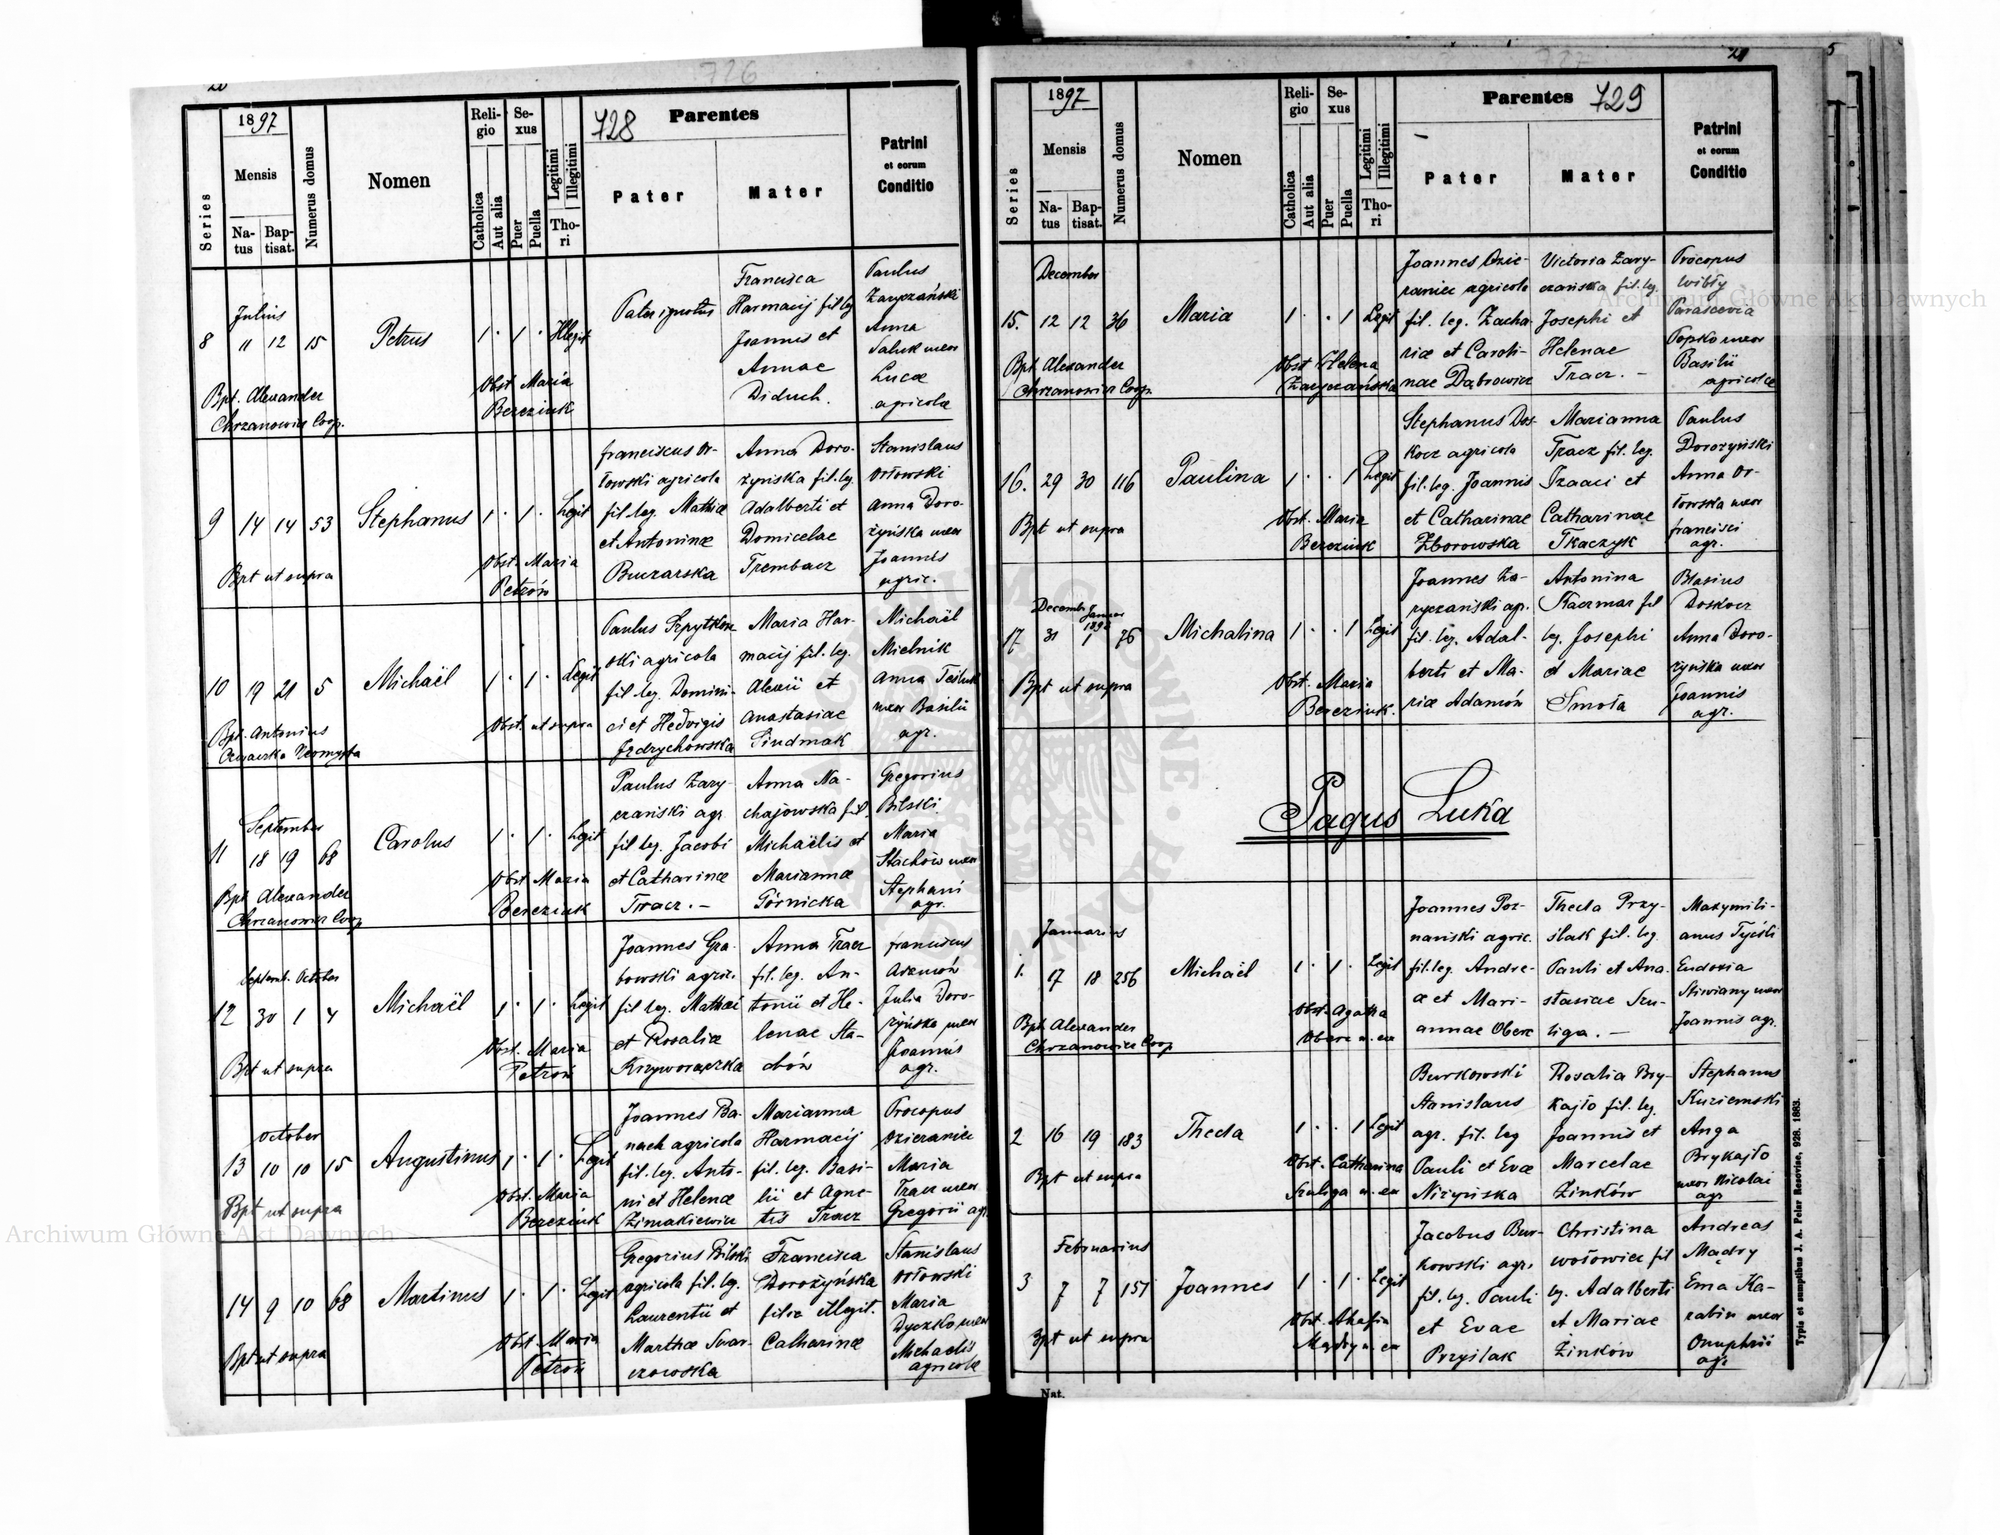 726
728
1897
Series
Mensis
Natus
Baptisat.
Numerus domus
Nomen
Religio
Catholica
Aut alia
Sexus
Puer
Puella
Legitimi
Illegitimi
Thori
Parentes
Pater
Mater
Patrini
et eorum
Conditio
Julius
8 11 12 15 Petrus 1 · 1 · Illegit
Bpt. Alexander
Chrzanowicz Coop.
Obst Maria
Bereziuk
Pater ignotus
Francisca
Harmacij fil. leg
Joannis et
Annae
Diduch.
Paulus
Zaryczański
Anna
Saluk uxor
Lucae
agricolae
9 14 14 53 Stephanus 1 · 1 · Legit
Bpt ut supra
Obst. Maria
Petroń
Franciscus Or-
łowski agricola
fil. leg. Mathiae
et Antoninae
Buczarska
Anna Doro-
żyńska fil. leg.
Adalberti et
Domicelae
Trembacz
Stanislaus
Orłowski
Anna Doro-
żyńska uxor
Joannis
agric.
10 19 21 5 Michaël 1 · 1 · Legit
Bpt. Antonius
Obst. ut supra
ski agricola
fil. leg. Domini-
ci et Hedvigis
Jędrychowska
Maria Har-
macij fil. leg.
Alexii et
Anastasiae
Sindmak
Michaël
Mielnik
uxor Basilii
agr.
September
11 18 19 68 Carolus 1 · 1 · Legit
Bpt Alexander
Chrzanowicz Coop
Obst Maria
Bereziuk
Paulus Zary-
czański agr.
fil leg. Jacobi
et Catharinae
Tracz. —
Anna Na-
chajowska fil.
Michaëlis et
Mariannae
Górnicka
Gregorius
Bilski
Maria
Stachów uxor
Stephani
agr.
Septemb. October
12 30 1 4 Michaël 1 · 1 · Legit
Bpt ut supra
Obst. Maria
Petroń
Joannes Gra-
bowski agric.
fil leg. Mathaei
et Rosaliae
Krzyworączka
Anna Tracz
fil. leg. An-
tonii et He-
lenae Sta-
chów
Franciscus
Adamów
Julia Doro-
żyńska uxor
Joannis
agr.
October
13 10 10 15 Augustinus 1 · 1 · Legit
Bpt ut supra
Obst. Maria
Bereziuk
Joannes Ba-
nach agricola
fil. leg. Anto-
ni et Helenae
Zimakiewicz
Marianna
Harmacij
fil. leg. Basi-
lii et Agne-
tis Tracz
Procopus
Dzieraniec
Maria
Tracz uxor
Gregorii agr.
14 9 10 68 Martinus 1 · 1 · Legit
Bpt ut supra
Obst. Maria
Petroń
Gregorius Bilski
agricola fil. leg.
Laurentii et
Marthae Swar-
czowska
Francisca
Dorożyńska
filia illegit.
Catharinae
Stanislaus
Orłowski
Maria
Dyczko uxor
Michaelis
agricolae
727
21
729
1897
Series
Mensis
Natus
Baptisat.
Numerus domus
Nomen
Religio
Catholica
Aut alia
Sexus
Puer
Puella
Legitimi
Illegitimi
Thori
Parentes
Pater
Mater
Patrini
et eorum
Conditio
December
15. 12 12 36 Maria 1 · · 1 Legit
Bpt Alexander
Chrzanowicz Coop.
Obst Helena
Zaryczańska
Joannes Dzie-
raniec agricola
fil. leg. Zacha-
riae et Caroli-
nae Dąbrowicz
Victoria Zary-
czańska fil. leg.
Josephi et
Helenae
Tracz. —
Procopus
Wibły
Parascevia
Popko uxor
Basilii
agricolae
16. 29 30 116 Paulina 1 · · 1 Legit
Bpt ut supra
Obst. Maria
Bereziuk
Stephanus Dos-
kocz agricola
fil. leg. Joannis
et Catharinae
Zborowska
Marianna
Tracz fil. leg.
Isaaci et
Catharinae
Tkaczyk
Paulus
Dorożyński
Anna Or-
łowska uxor
Francisci
agr.
Decemb. Januar
1898
17 31 1 76 Michalina 1 · · 1 Legit
Bpt ut supra
Obst. Maria
Bereziuk.
Joannes Za-
ryczański agr.
fil. leg. Adal-
berti et Ma-
riae Adamów
Antonina
Kaczmar fil
leg. Josephi
et Mariae
Smoła
Blasius
Doskocz
Anna Doro-
żyńska uxor
Joannis
agr.
Pagus Luka
Januarius
1. 17 18 256 Michaël 1 · 1 · Legit
Bpt. Alexander
Chrzanowicz Coop
Obst. Agatha
Joannes Poz-
nański agric.
fil. leg. Andre-
ae et Mari-
annae Oberc
Thecla Przy-
ślak fil. leg.
Pauli et Ana-
stasiae Szu-
liga. —
Maxymili-
anus Tycśki
Eudoxia
Joannis agr.
2 16 19 183 Thecla 1 · · 1 Legit
Bpt ut supra
Obst. Catharina
Szuliga n. ex
Burkowski
Stanislaus
agr. fil. leg
Pauli et Evae
Niżyńska
Rosalia Bry-
kajło fil. leg.
Joannis et
Marcelae
Zinków
Stephanus
Kuziemski
Anga
Brykajło
uxor Nicolai
agr
Februarius
3 7 7 157 Joannes 1 · 1 · Legit
Bpt ut supra
Obst. Ahafia
Mądry n. ex
Jacobus Bur-
kowski agr.
fil. leg. Pauli
et Evae
Przyślak
Christina
Wołowiec fil
leg. Adalberti
et Mariae
Zinków
Andreas
Mądry
Ema Ka-
rabin uxor
Onuphrii
agr
Nat.
Typis et sumptibus J. A. Pelar Resoviae, 928. 1883.
Archiwum Główne Akt Dawnych
Archiwum Główne Akt Dawnych